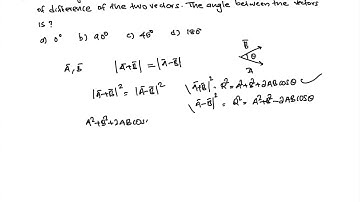 of difference of the two vectors. The angle between the vectors
is ?
a) 0° b) 90° c) 45° d) 180°
A̅, B̅ |A̅+B̅| = |A̅-B̅|
B̅
θ
A̅
|A̅+B̅|² = |A̅-B̅|²
|A̅+B̅|² = R² = A²+B²+2ABcosθ ✓
|A̅-B̅|² = R² = A²+B²-2ABcosθ
A²+B²+2ABcos